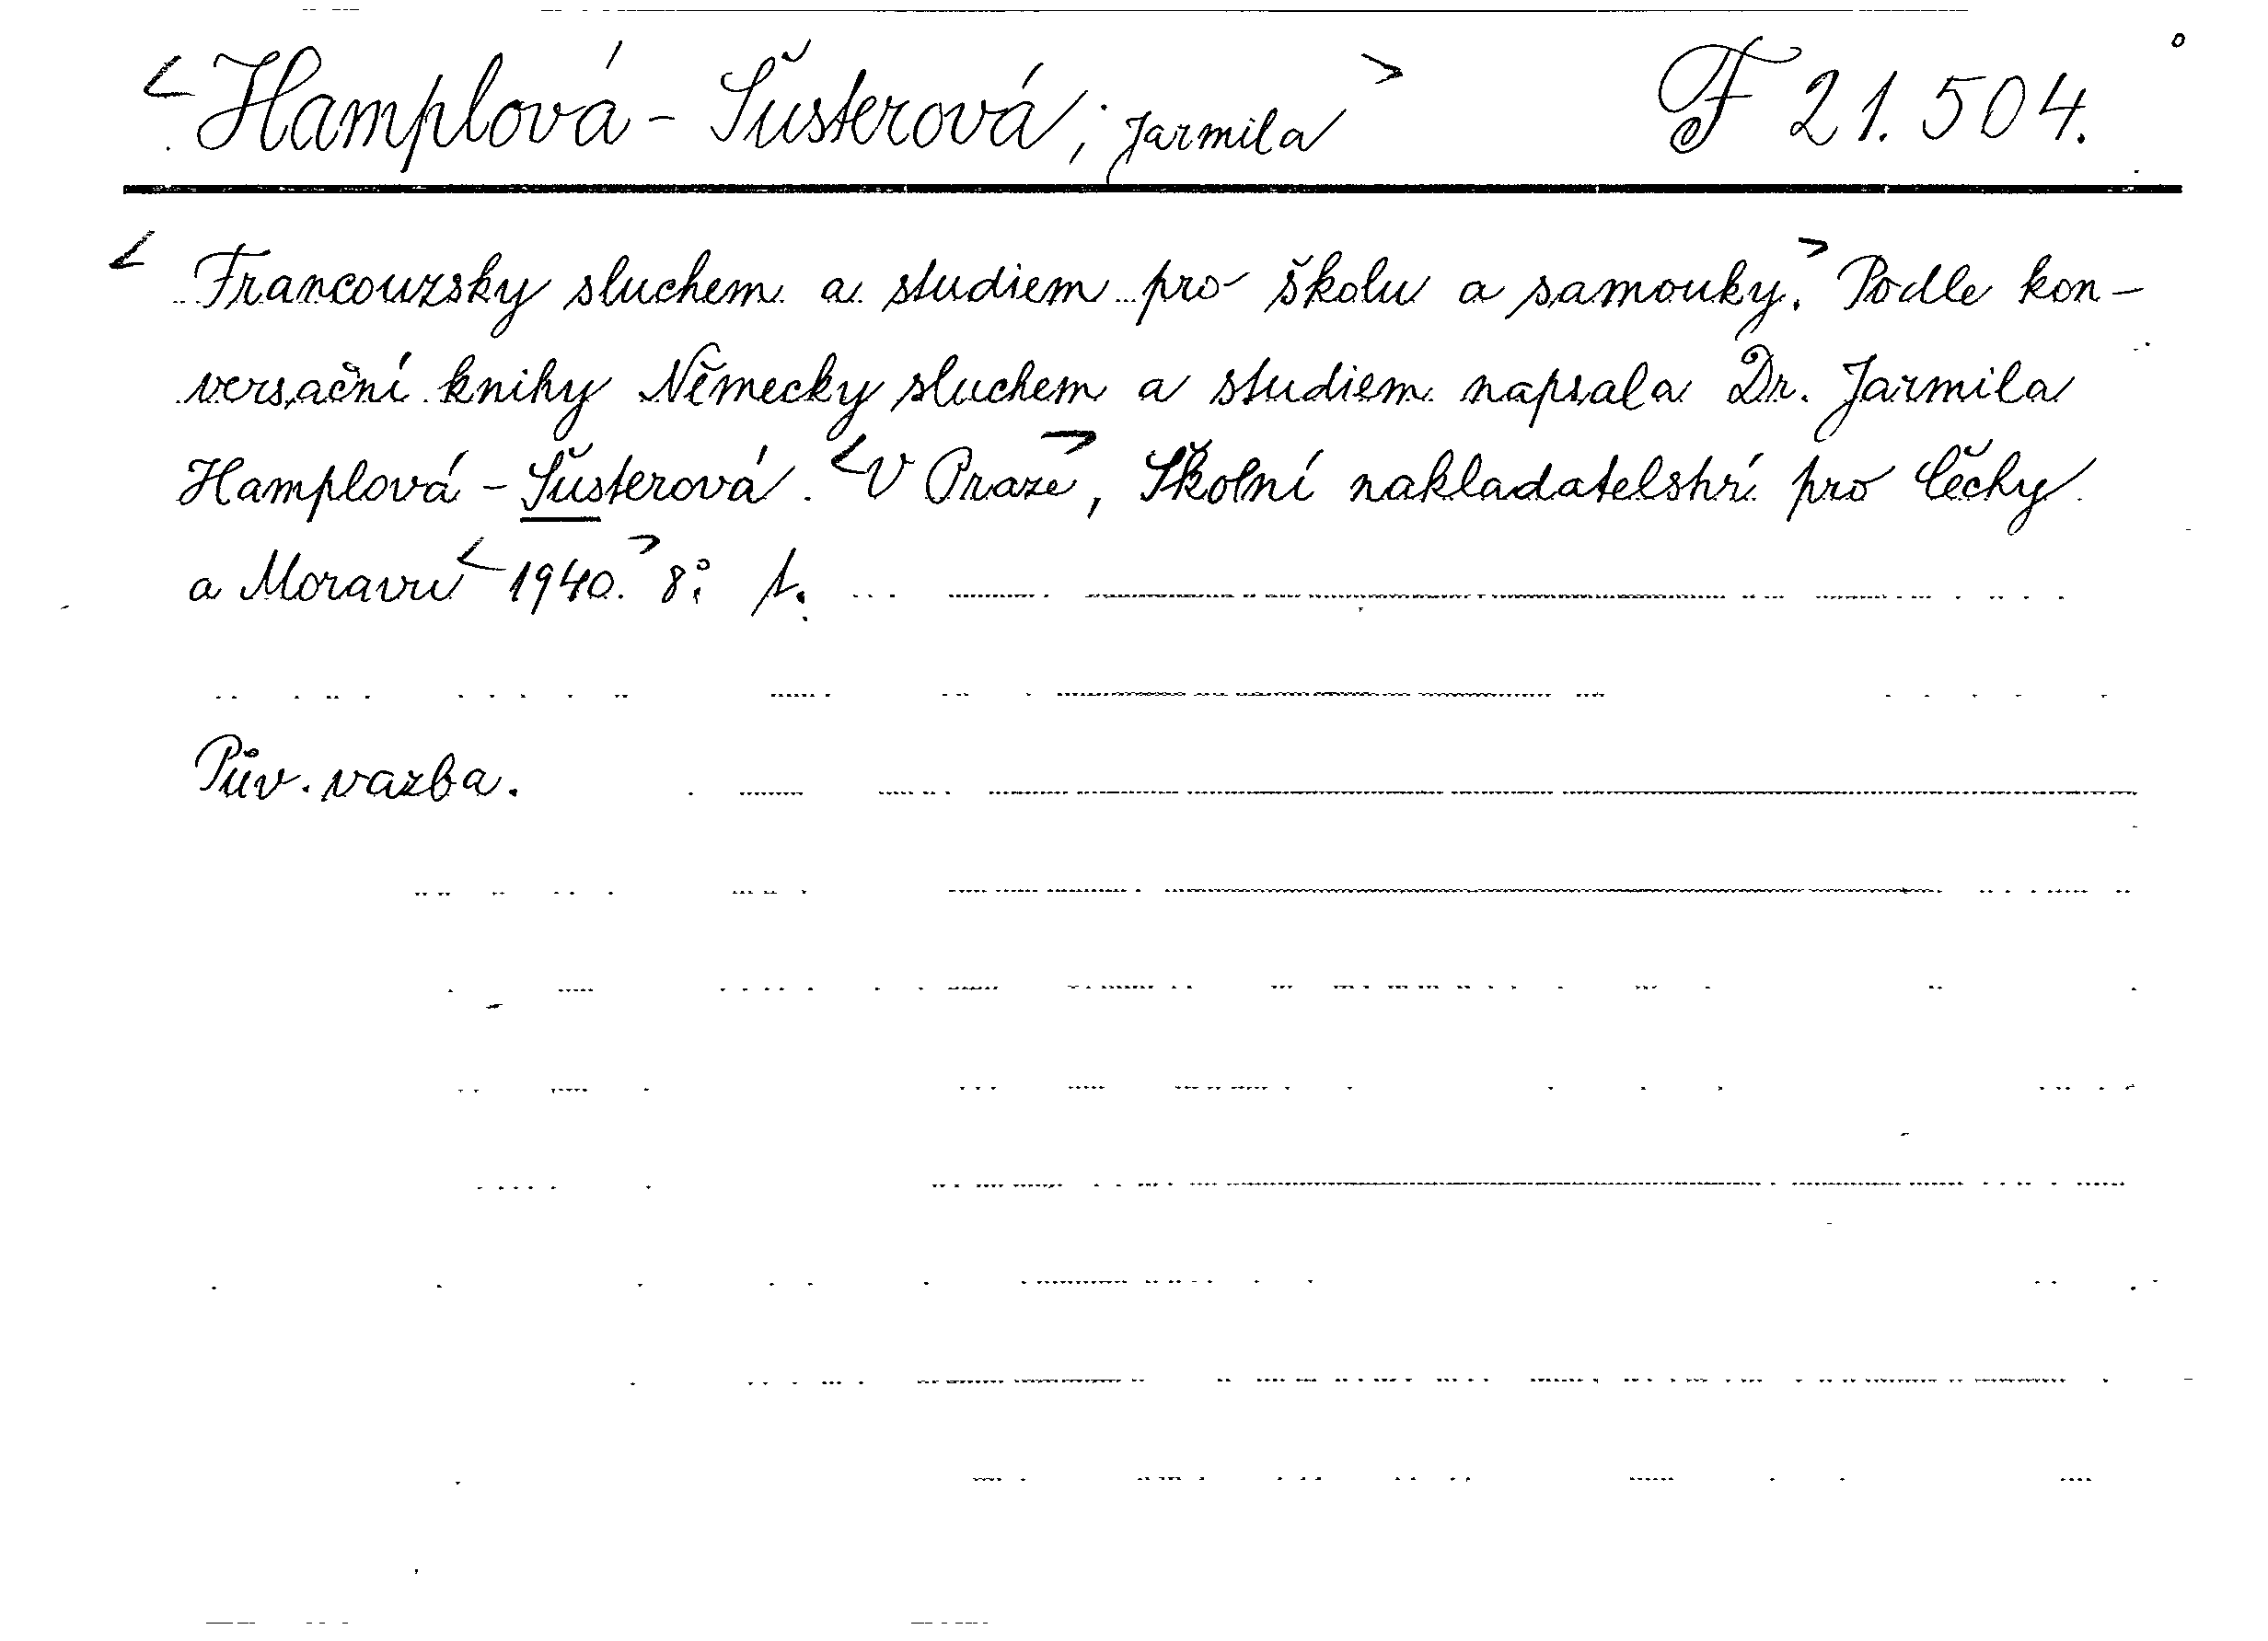 <Hamplová-Šusterová, Jarmila> F 21.504.
<Francouzsky sluchem a studiem pro školu a samouky.> Podle kon-
versační knihy Německy sluchem a studiem napsala Dr. Jarmila
Hamplová-Šusterová. <V Praze>, Školní nakladatelství pro Čechy
a Moravu <1940.> 8°.
Pův. vazba.